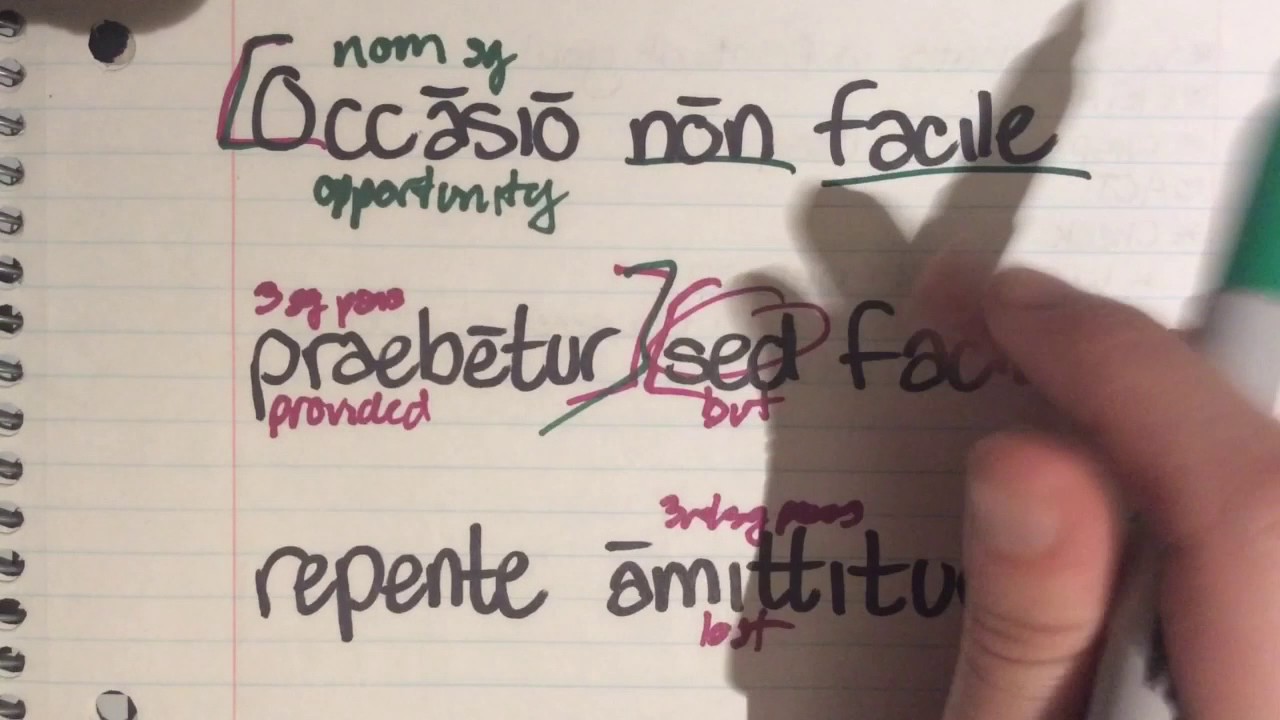 nom sg
Occāsiō nōn facile
opportunity
3 sg pass
praebētur sed
provided but
3rd sg pass
repente āmittitu
lost